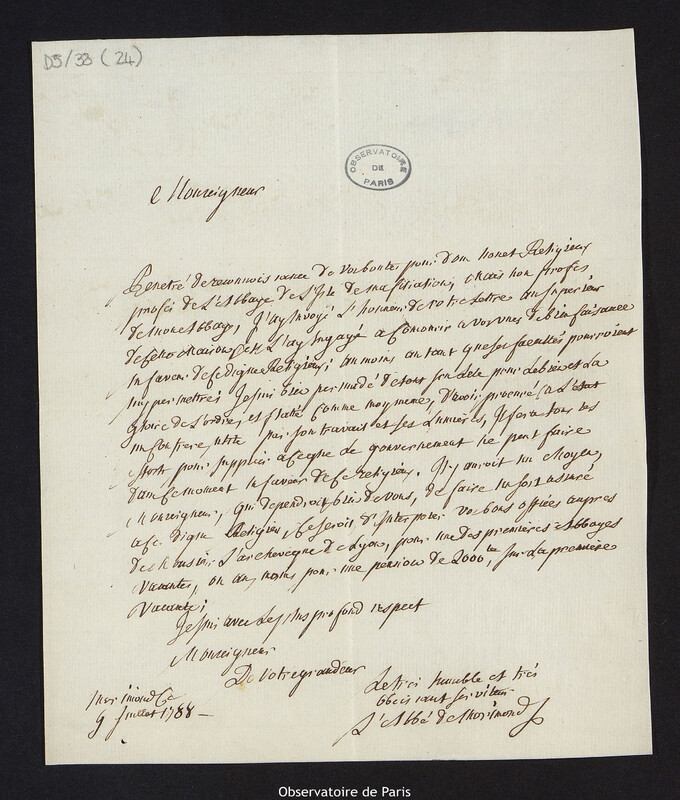 D5/38 (24)
OBSERVATOIRE
DE
PARIS
Monseigneur
Penetré de reconnoissance de vos bontés pour dom nouet Religieux
profés de L'Abbaye de L'isle de ma filiation, mais non profés
de mon Abbaye, J'ay Envoyé L'honneur de votre Lettre au superieur
de cette Maison, et L'ay Engagé a Concourir a vos vües de bienfaisance
En faveur de ce digne Religieux; au moins autant que ses facultés pourroient
luy permettre; Je suis bien persuadé de tout son zele pour Le bien et La
gloire de L'ordre, et flatté Comme moy meme, d'avoir procuré a L'Etat
un Confrere utile par son travail et ses Lumieres, Il fera tous ses
efforts pour suppléer a ce que Le gouvernement ne peut faire
dans ce moment En faveur de ce Religieux. Il y auroit un Moyen,
Monseigneur, qui dependroit bien de vous, de faire un sort assuré
a ce digne Religieux, Ce seroit d'Interposer vos bons offices aupres
de Monsieur L'archeveque de Lyon, pour une des premieres Abbayes
vacantes, ou au moins pour une pension de 2000 tt, sur La premiere
vacante;
Je suis avec Le plus profond respect
Monseigneur
De votre grandeur
Le tres humble et tres
obeissant serviteur
L'Abbé de Morimond
Morimond Ce
9 Juillet 1788 -
Observatoire de Paris